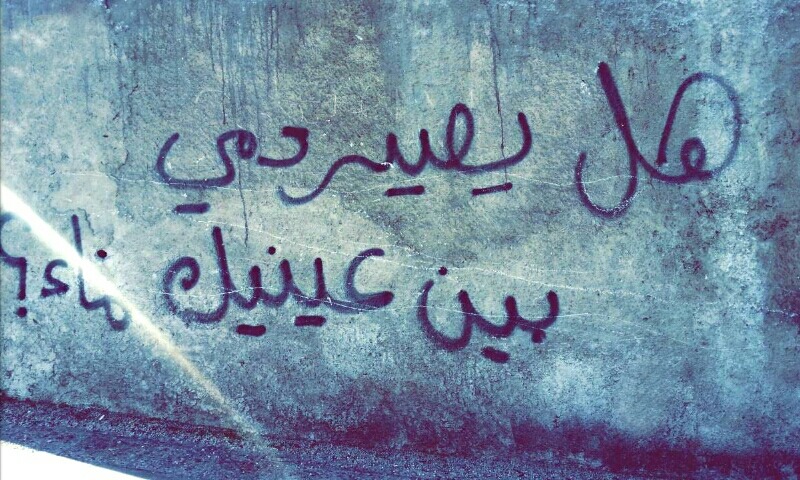 هل يصير دمي
بين عينيك ماء؟